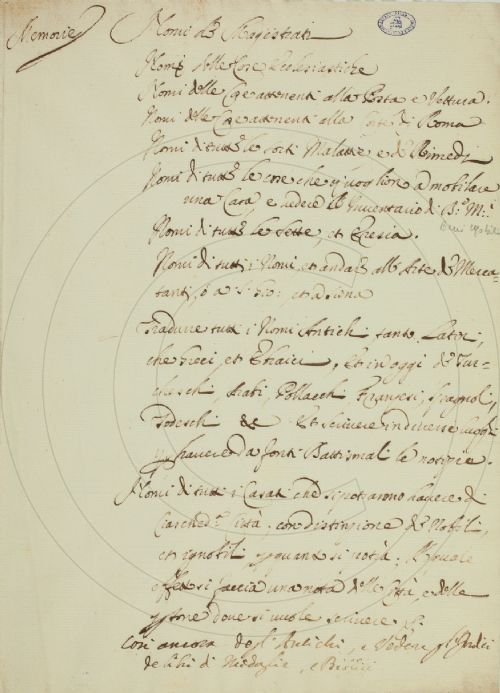 Memorie
Nomi de Magistrati
Nomi delle Cose Ecclesiastiche
Nomi delle Cose attenenti alla Posta e Vettura.
Nomi delle Cose attenenti alla Corte di Roma
Nomi di tutte le sorti Malattie e de Rimedij
Nomi di tutte le cose che vogliono a mobilare
una Casa, e vedere l'Inventario di B. M.
Nomi di tutte le Sette, et Eresia.
Nomi di tutti i Nomi, et andar all'Arte de Merca-
tanti, o a et a Siena
Tradurre tutti i Nomi Antichi, tanto Latini,
che Greci, et Ebraici, et in oggi de Tur-
cheschi, Arabi, Pollacchi, Francesi, Spagnoli,
Todeschi &c Et scrivere in diversi luoghi
p havere da fonti Battismali le notizie.
Nomi di tutti i Casati che si potranno havere di
Ciasched.a Città, con distinzione de Nobili,
et ignobili p quanto si potrà; Al quale
effetto si faccia una nota delle Città, e delle
persone dove si vuole scrivere
Così ancora degl'Antichi, e Vedere gl'Indici
de libri di Medaglie, e